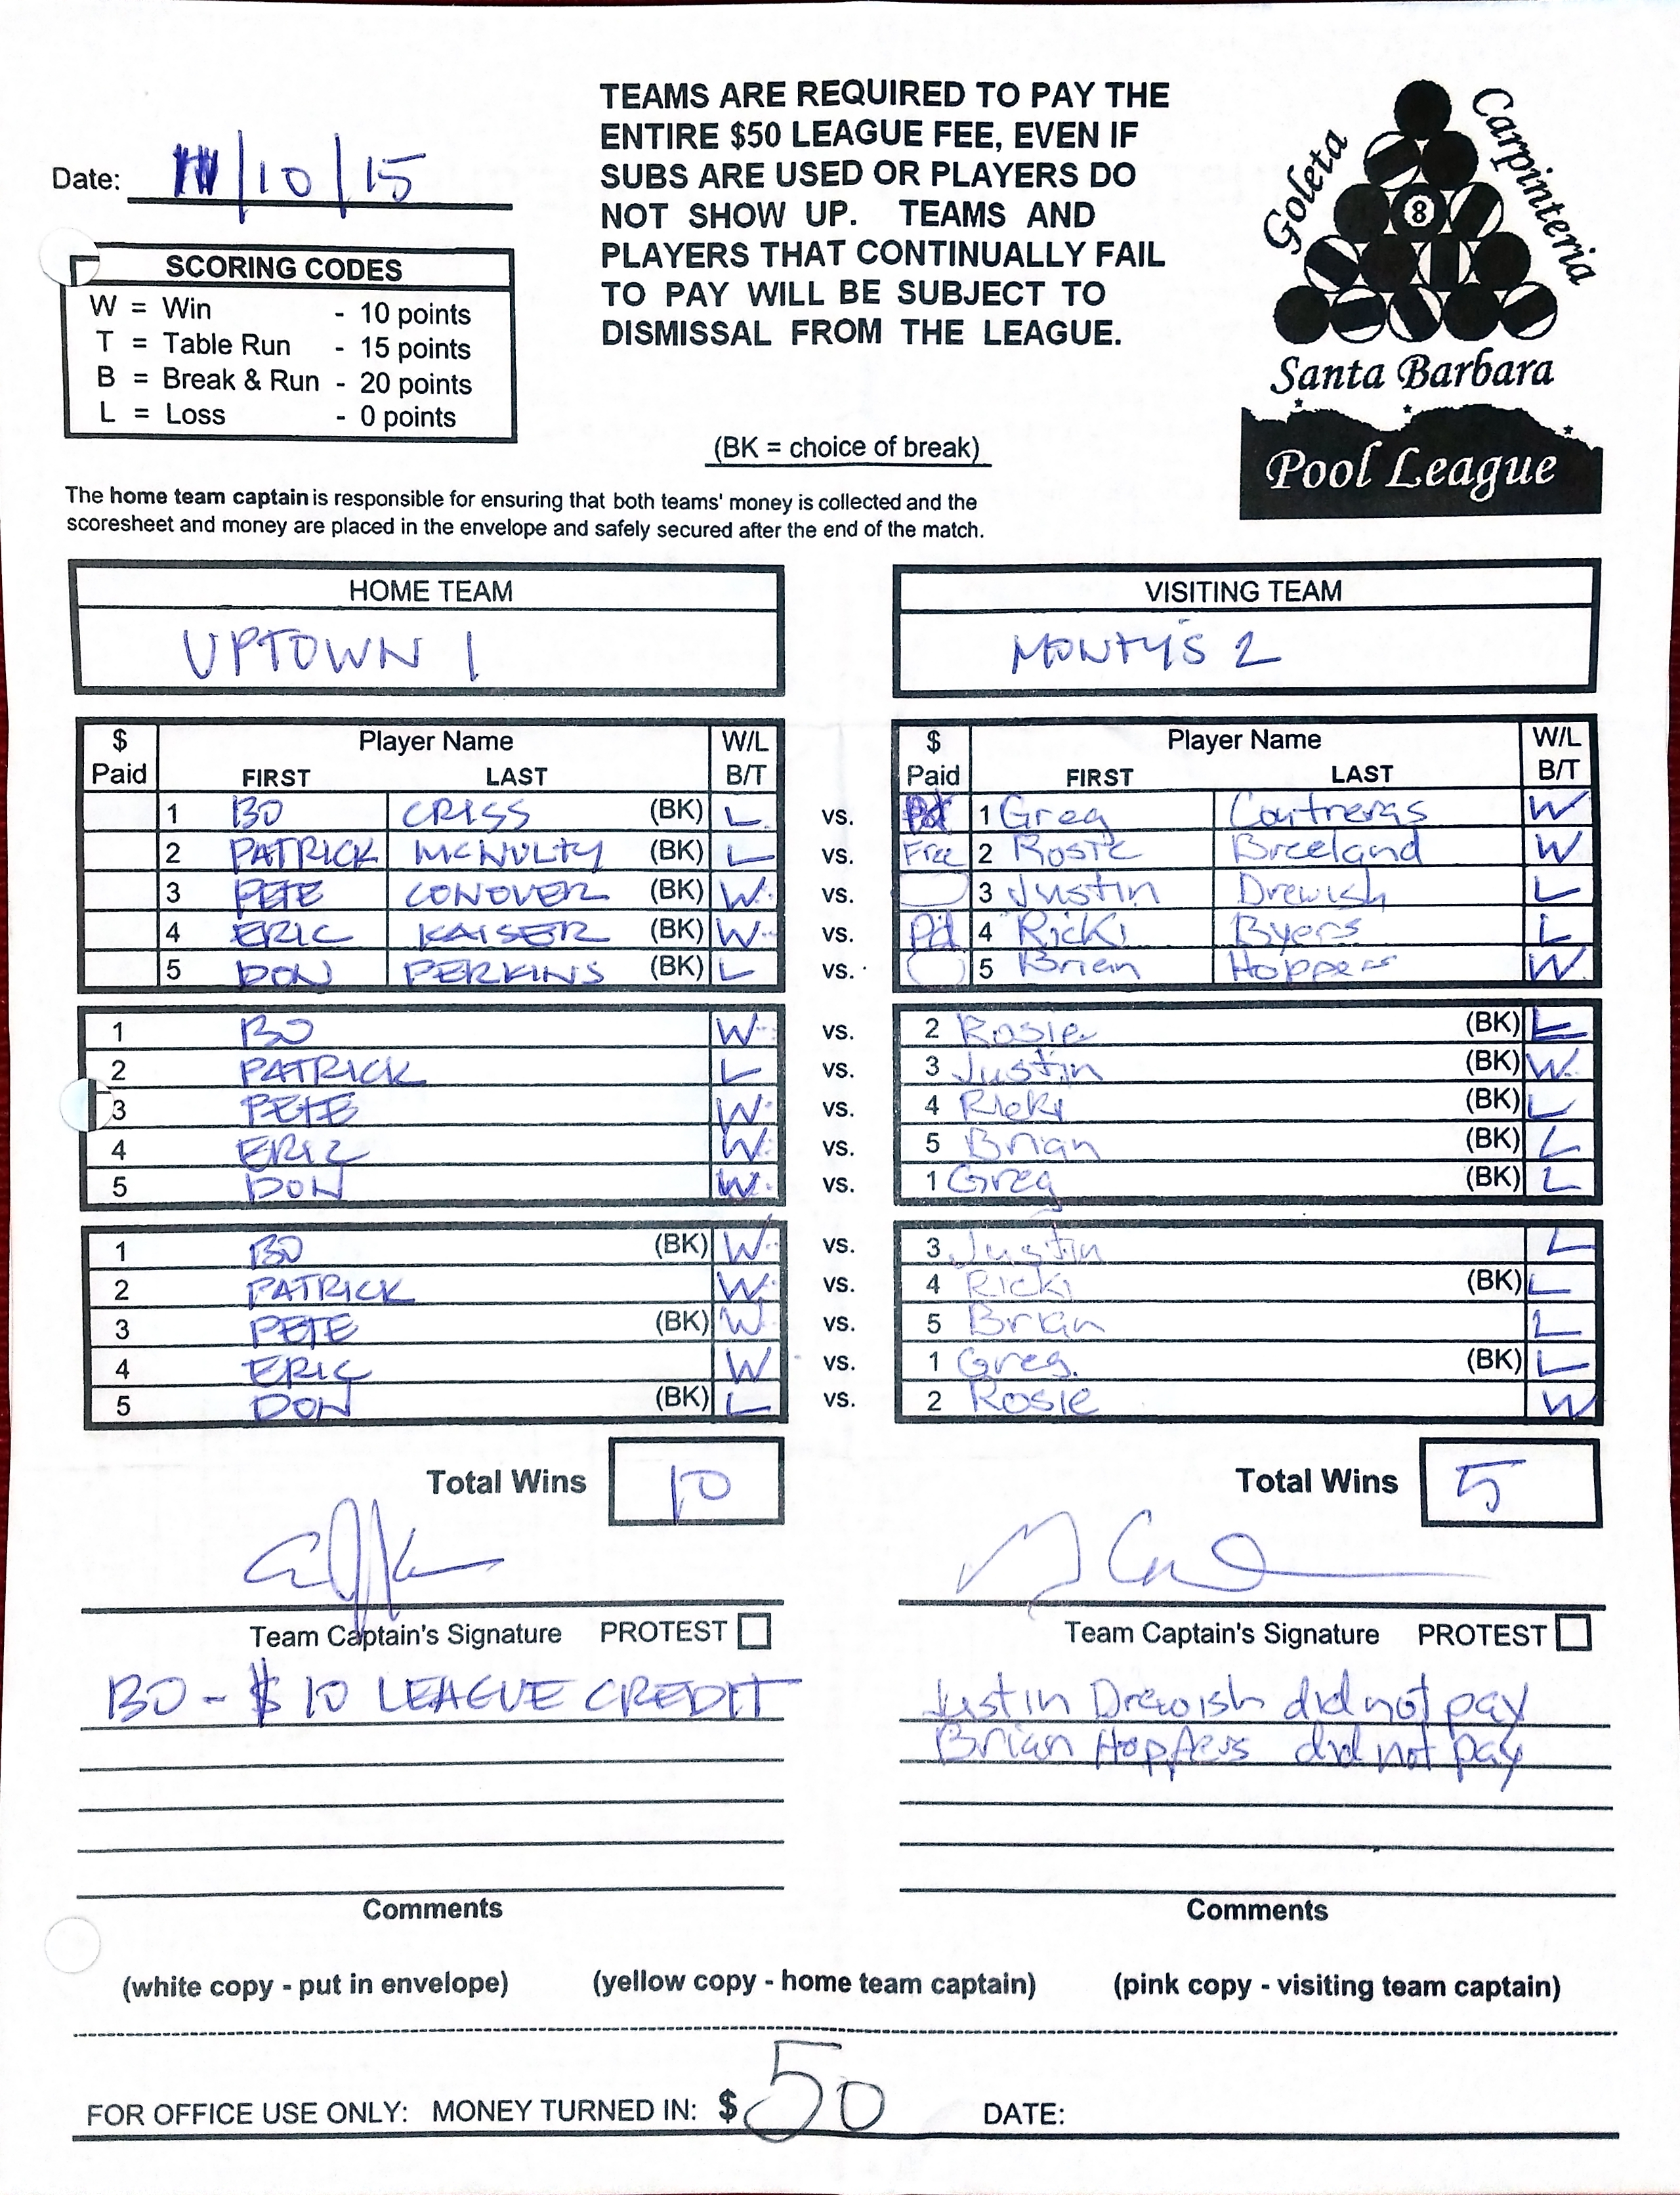 TEAMS ARE REQUIRED TO PAY THE
ENTIRE $50 LEAGUE FEE, EVEN IF
SUBS ARE USED OR PLAYERS DO
NOT SHOW UP. TEAMS AND
PLAYERS THAT CONTINUALLY FAIL
TO PAY WILL BE SUBJECT TO
DISMISSAL FROM THE LEAGUE.
Date: /10/15
SCORING CODES
W = Win - 10 points
T = Table Run - 15 points
B = Break & Run - 20 points
L = Loss - 0 points
(BK = choice of break)
Goleta
Carpinteria
8
Santa Barbara
Pool League
The home team captain is responsible for ensuring that both teams' money is collected and the
scoresheet and money are placed in the envelope and safely secured after the end of the match.
HOME TEAM VISITING TEAM
UPTOWN 1 MONTY'S 2
$ Player Name W/L $ Player Name W/L
Paid FIRST LAST B/T Paid FIRST LAST B/T
1 BO CRISS (BK) L vs. Pd 1 Greg Contreras W
2 PATRICK MCNULTY (BK) L vs. Free 2 Rosie Breeland W
3 PETE CONOVER (BK) W vs. 3 Justin Drewish L
4 ERIC KAISER (BK) W vs. Pd 4 Ricki Byers L
5 DON PERKINS (BK) L vs. 5 Brian Hoppers W
1 BO W vs. 2 Rosie (BK) L
2 PATRICK L vs. 3 Justin (BK) W
3 PETE W vs. 4 Ricki (BK) L
4 ERIC W vs. 5 Brian (BK) L
5 DON W vs. 1 Greg (BK) L
1 BO (BK) W vs. 3 Justin L
2 PATRICK W vs. 4 Ricki (BK) L
3 PETE (BK) W vs. 5 Brian L
4 ERIC W vs. 1 Greg. (BK) L
5 DON (BK) L vs. 2 Rosie W
Total Wins 10 Total Wins 5
Team Captain's Signature PROTEST Team Captain's Signature PROTEST
BO - $10 LEAGUE CREDIT
Justin Drewish did not pay
Brian Hoppers did not pay
Comments Comments
(white copy - put in envelope) (yellow copy - home team captain) (pink copy - visiting team captain)
FOR OFFICE USE ONLY: MONEY TURNED IN: $ 50 DATE: